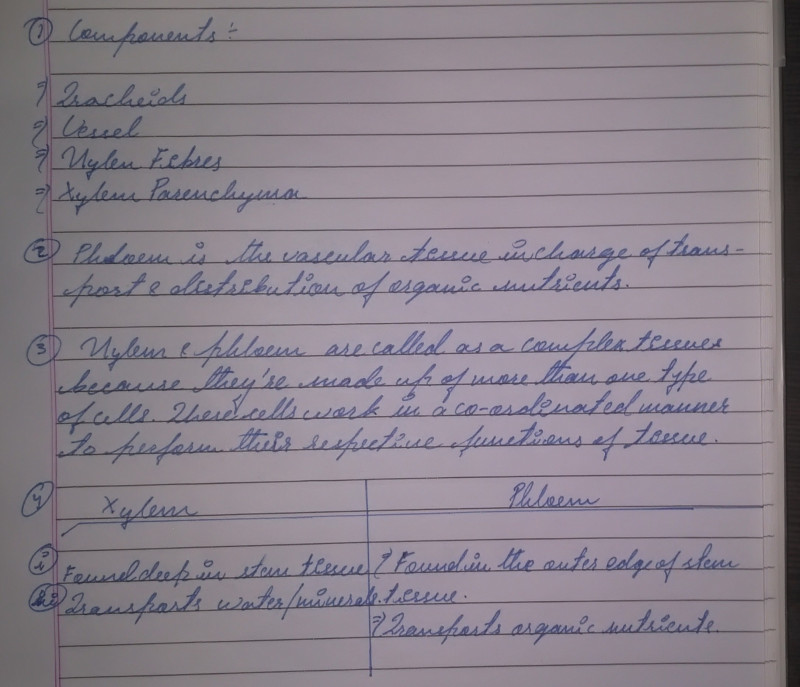 ① Components :-
⇒ Tracheids
⇒ Vessel
⇒ Xylem Fibres
⇒ Xylem Parenchyma
② Phloem is the vascular tissue in charge of trans-
port & distribution of organic nutrients.
③ Xylem & phloem are called as a complex tissues
because they're made up of more than one type
of cells. These cells work in a co-ordinated manner
to perform their respective functions of tissue.
④ Xylem Phloem
ⓘ Found deep in stem tissue ⇒ Found in the outer edge of stem
ⓘⓘ Transports water/minerals. tissue.
⇒ Transports organic nutrients.